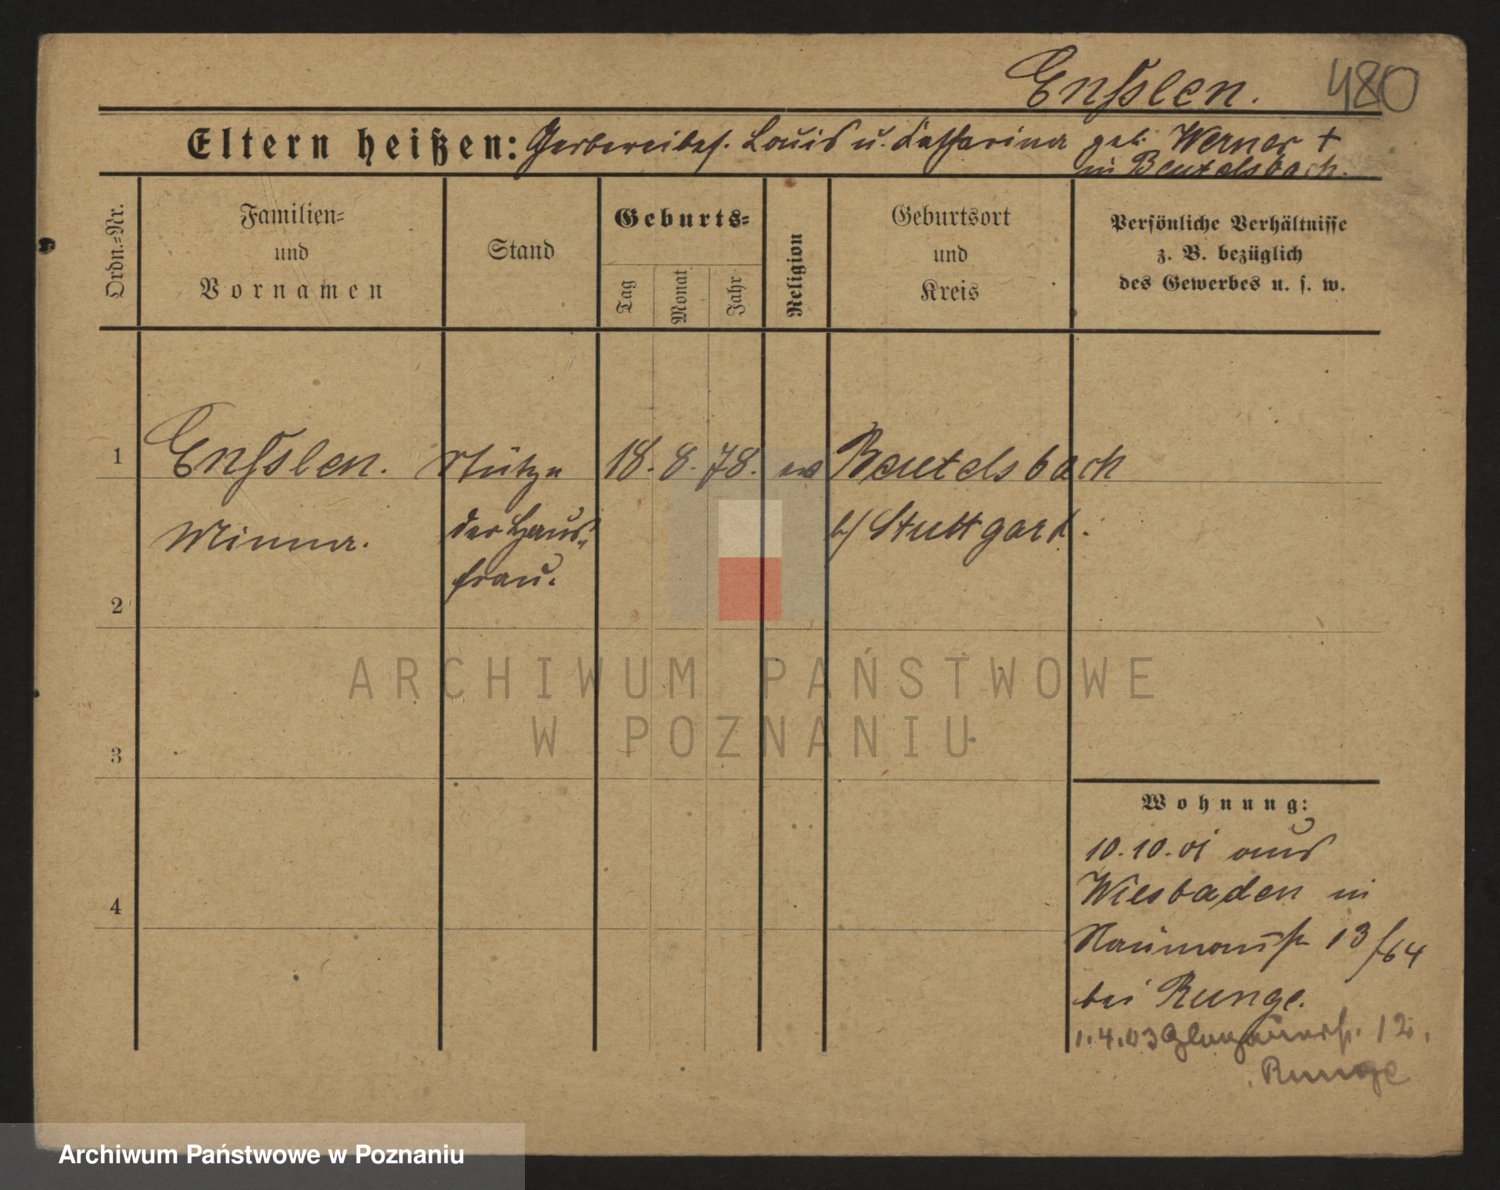 Ensslen. 480
Eltern heißen: Gerbereibes. Louis u. Katharina geb. Werner +
in Beutelsbach.
Ordn.=Nr.
Familien=
und
Vornamen
Stand
Geburts=
Tag
Monat
Jahr
Religion
Geburtsort
und
Kreis
Persönliche Verhältnisse
z. B. bezüglich
des Gewerbes u. s. w.
1 Ensslen. Stütze 18. 8. 78. ev Beutelsbach
Minna. der Haus= b/ Stuttgart.
frau.
2
3
4
ARCHIWUM PAŃSTWOWE
W POZNANIU
Wohnung:
10.10.01 aus
Wiesbaden in
Naumannstr 13/64
bei Runge.
1.4.03 Glogauerstr. 12.
Runge
Archiwum Państwowe w Poznaniu